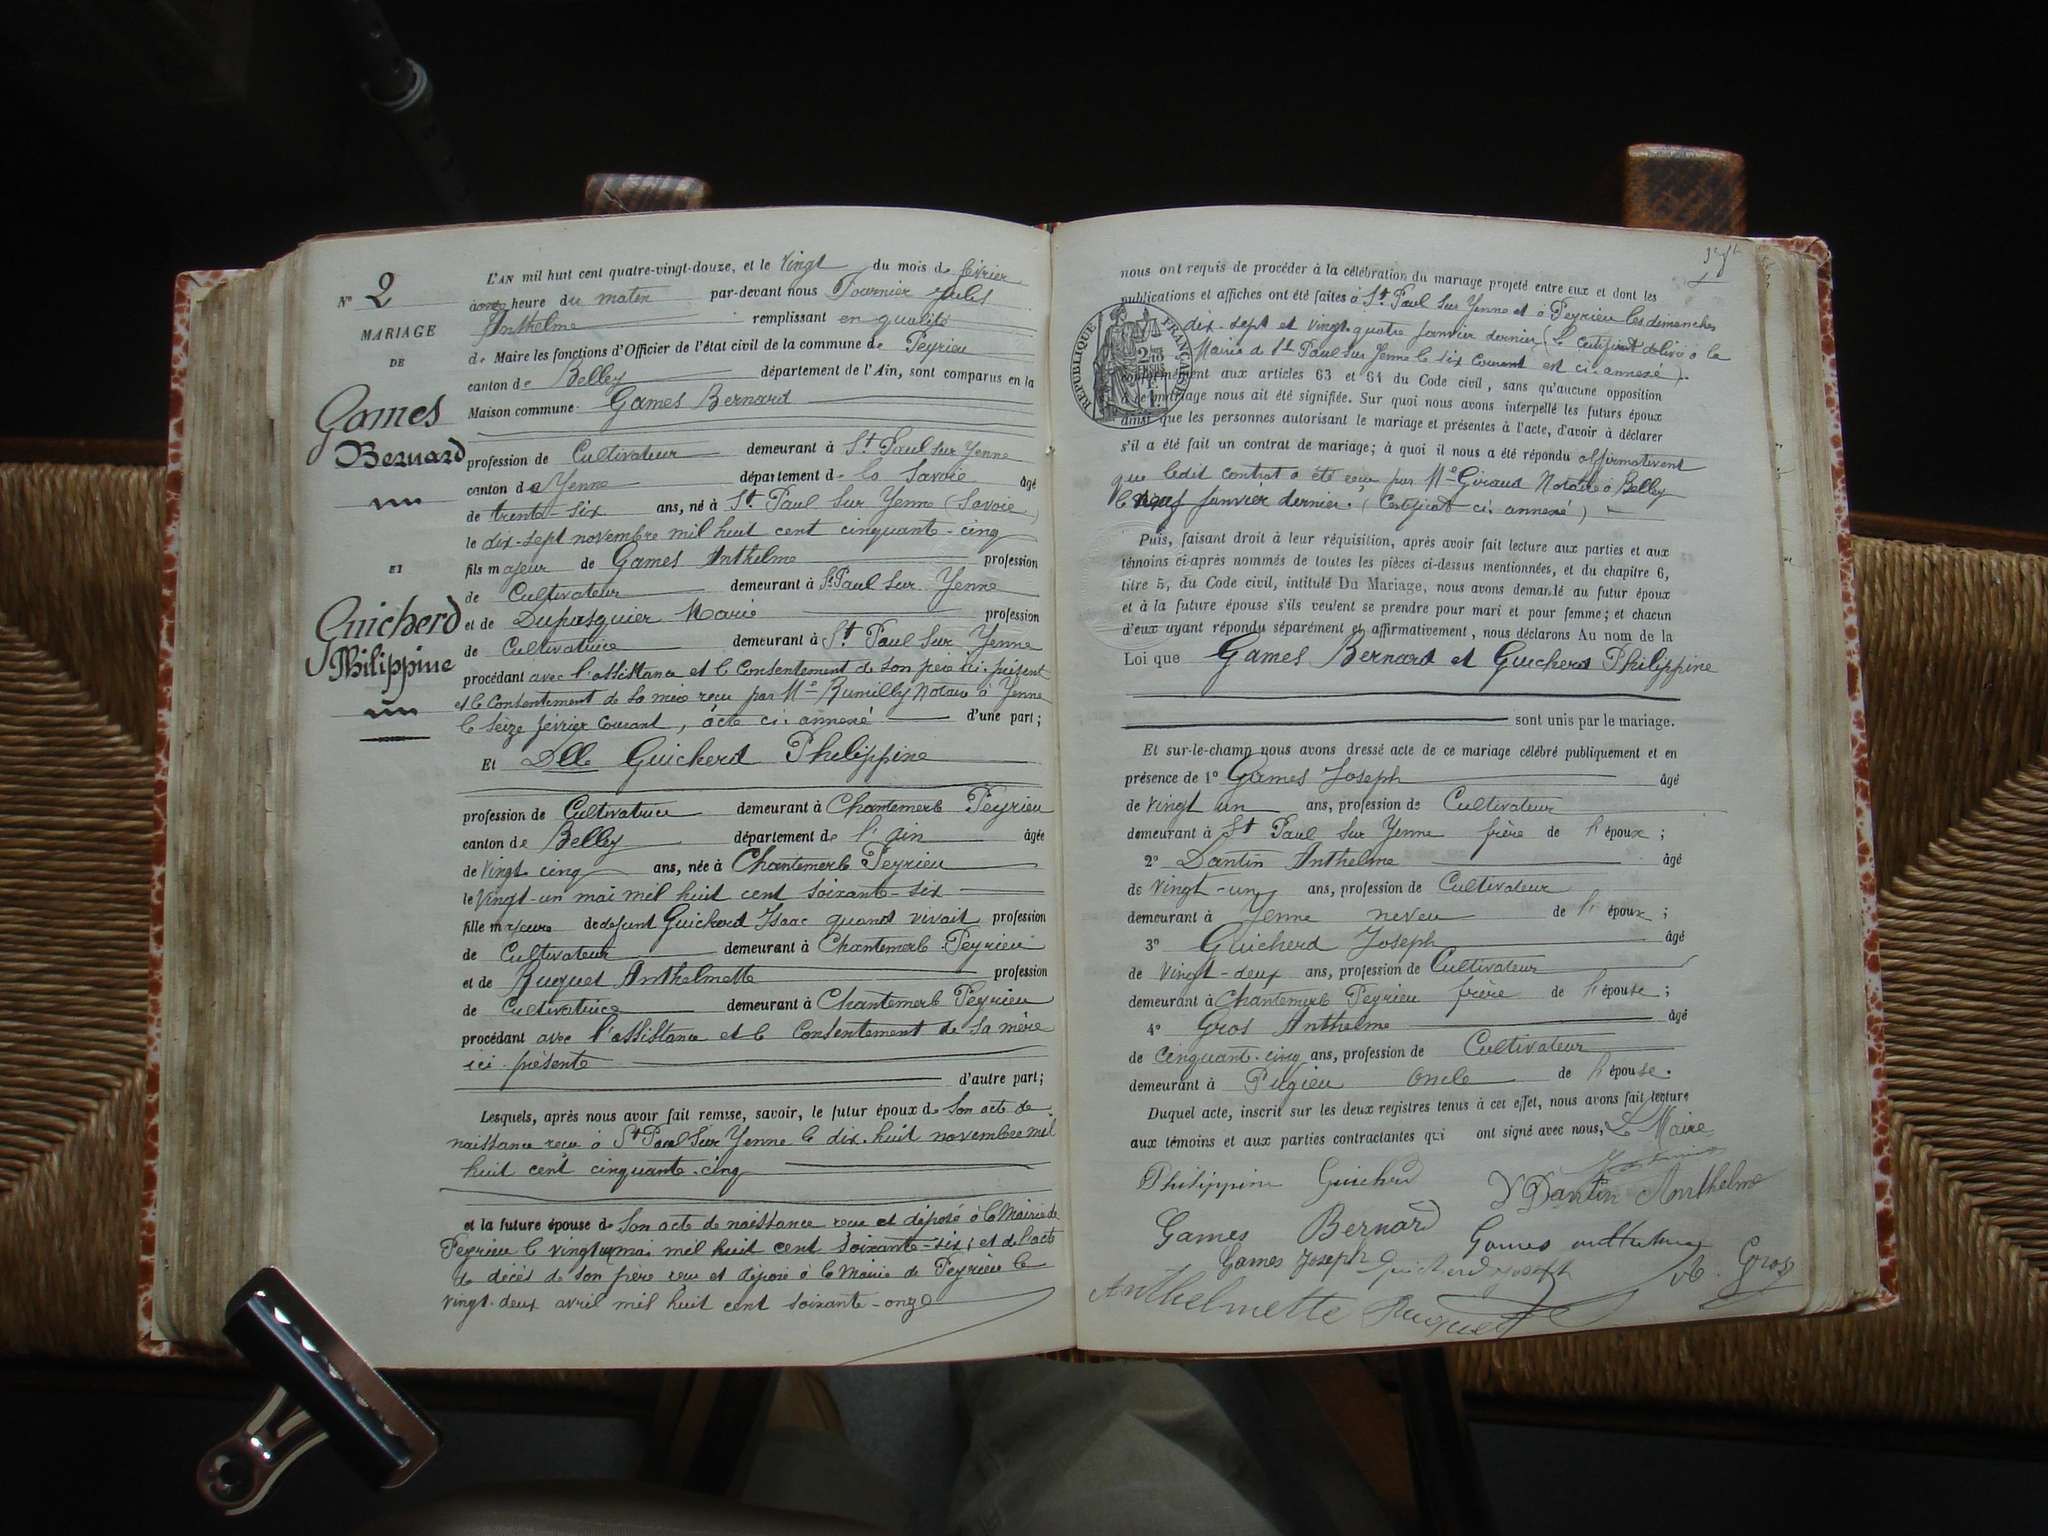 N° 2
MARIAGE
DE
Games
Bernard
ET
Guicherd
Philippine
L'AN mil huit cent quatre-vingt-douze, et le vingt du mois de février
à onze heure du matin par-devant nous Fournier Jules
Anthelme remplissant en qualité
de Maire les fonctions d'Officier de l'état civil de la commune de Peyrieu
canton de Belley département de l'Ain, sont comparus en la
Maison commune Games Bernard
profession de Cultivateur demeurant à St Paul sur Yenne
canton de Yenne département de la Savoie âgé
de trente-six ans, né à St Paul sur Yenne (Savoie)
le dix-sept novembre mil huit cent cinquante-cinq
fils majeur de Games Anthelme profession
de Cultivateur demeurant à St Paul sur Yenne
et de Dupasquier Marie profession
de Cultivatrice demeurant à St Paul sur Yenne
procédant avec l'assistance et le Consentement de son père ici présent
et le Consentement de sa mère reçu par Me Rumilly Notaire à Yenne
le seize février courant, acte ci-annexé d'une part;
Et Dlle Guicherd Philippine
profession de Cultivatrice demeurant à Chantemerle Peyrieu
canton de Belley département de l'Ain âgée
de vingt cinq ans, née à Chantemerle Peyrieu
le vingt-un mai mil huit cent soixante-six
fille majeure de defunt Guicherd Isaac quand vivait profession
de Cultivateur demeurant à Chantemerle Peyrieu
et de Huguet Anthelmette profession
de Cultivatrice demeurant à Chantemerle Peyrieu
procédant avec l'assistance et le Consentement de sa mère
ici présente
d'autre part;
Lesquels, après nous avoir fait remise, savoir, le futur époux de son acte de
naissance reçu à St Paul sur Yenne le dix-huit novembre mil
huit cent cinquante-cinq
et la future épouse de son acte de naissance reçu et déposé à la Mairie de
Peyrieu le vingt un mai mil huit cent soixante-six; et de l'acte
de décès de son père reçu et déposé à la Mairie de Peyrieu le
vingt-deux avril mil huit cent soixante-onze
nous ont requis de procéder à la célébration du mariage projeté entre eux et dont les
publications et affiches ont été faites à St Paul sur Yenne et à Peyrieu les dimanches
dix-sept et vingt-quatre janvier dernier (le certificat délivré à la
Mairie de St Paul sur Yenne le six Courant est ci-annexé).
conformément aux articles 63 et 64 du Code civil, sans qu'aucune opposition
à ce mariage nous ait été signifiée. Sur quoi nous avons interpellé les futurs époux
ainsi que les personnes autorisant le mariage et présentes à l'acte, d'avoir à déclarer
s'il a été fait un contrat de mariage; à quoi il nous a été répondu affirmativement
que ledit contrat a été reçu par Me Giraud Notaire à Belley
le neuf janvier dernier. (Certificat ci-annexé)
REPUBLIQUE FRANÇAISE
Puis, faisant droit à leur réquisition, après avoir fait lecture aux parties et aux
témoins ci-après nommés de toutes les pièces ci-dessus mentionnées, et du chapitre 6,
titre 5, du Code civil, intitulé Du Mariage, nous avons demandé au futur époux
et à la future épouse s'ils veulent se prendre pour mari et pour femme; et chacun
d'eux ayant répondu séparément et affirmativement, nous déclarons Au nom de la
Loi que Games Bernard et Guicherd Philippine
sont unis par le mariage.
Et sur-le-champ nous avons dressé acte de ce mariage célébré publiquement et en
présence de 1° Games Joseph âgé
de vingt un ans, profession de Cultivateur
demeurant à St Paul sur Yenne frère de l'époux;
2° Dantin Anthelme âgé
de vingt-un ans, profession de Cultivateur
demeurant à Yenne neveu de l'époux;
3° Guicherd Joseph âgé
de vingt-deux ans, profession de Cultivateur
demeurant à Chantemerle Peyrieu frère de l'épouse;
4° Gros Anthelme âgé
de cinquante-cinq ans, profession de Cultivateur
demeurant à Pugieu oncle de l'épouse.
Duquel acte, inscrit sur les deux registres tenus à cet effet, nous avons fait lecture
aux témoins et aux parties contractantes qui ont signé avec nous, Le Maire
Philippine Guicherd Dantin Anthelme
Games Bernard Games anthelme
Games Joseph Guicherd Joseph Gros
Anthelmette Huguet